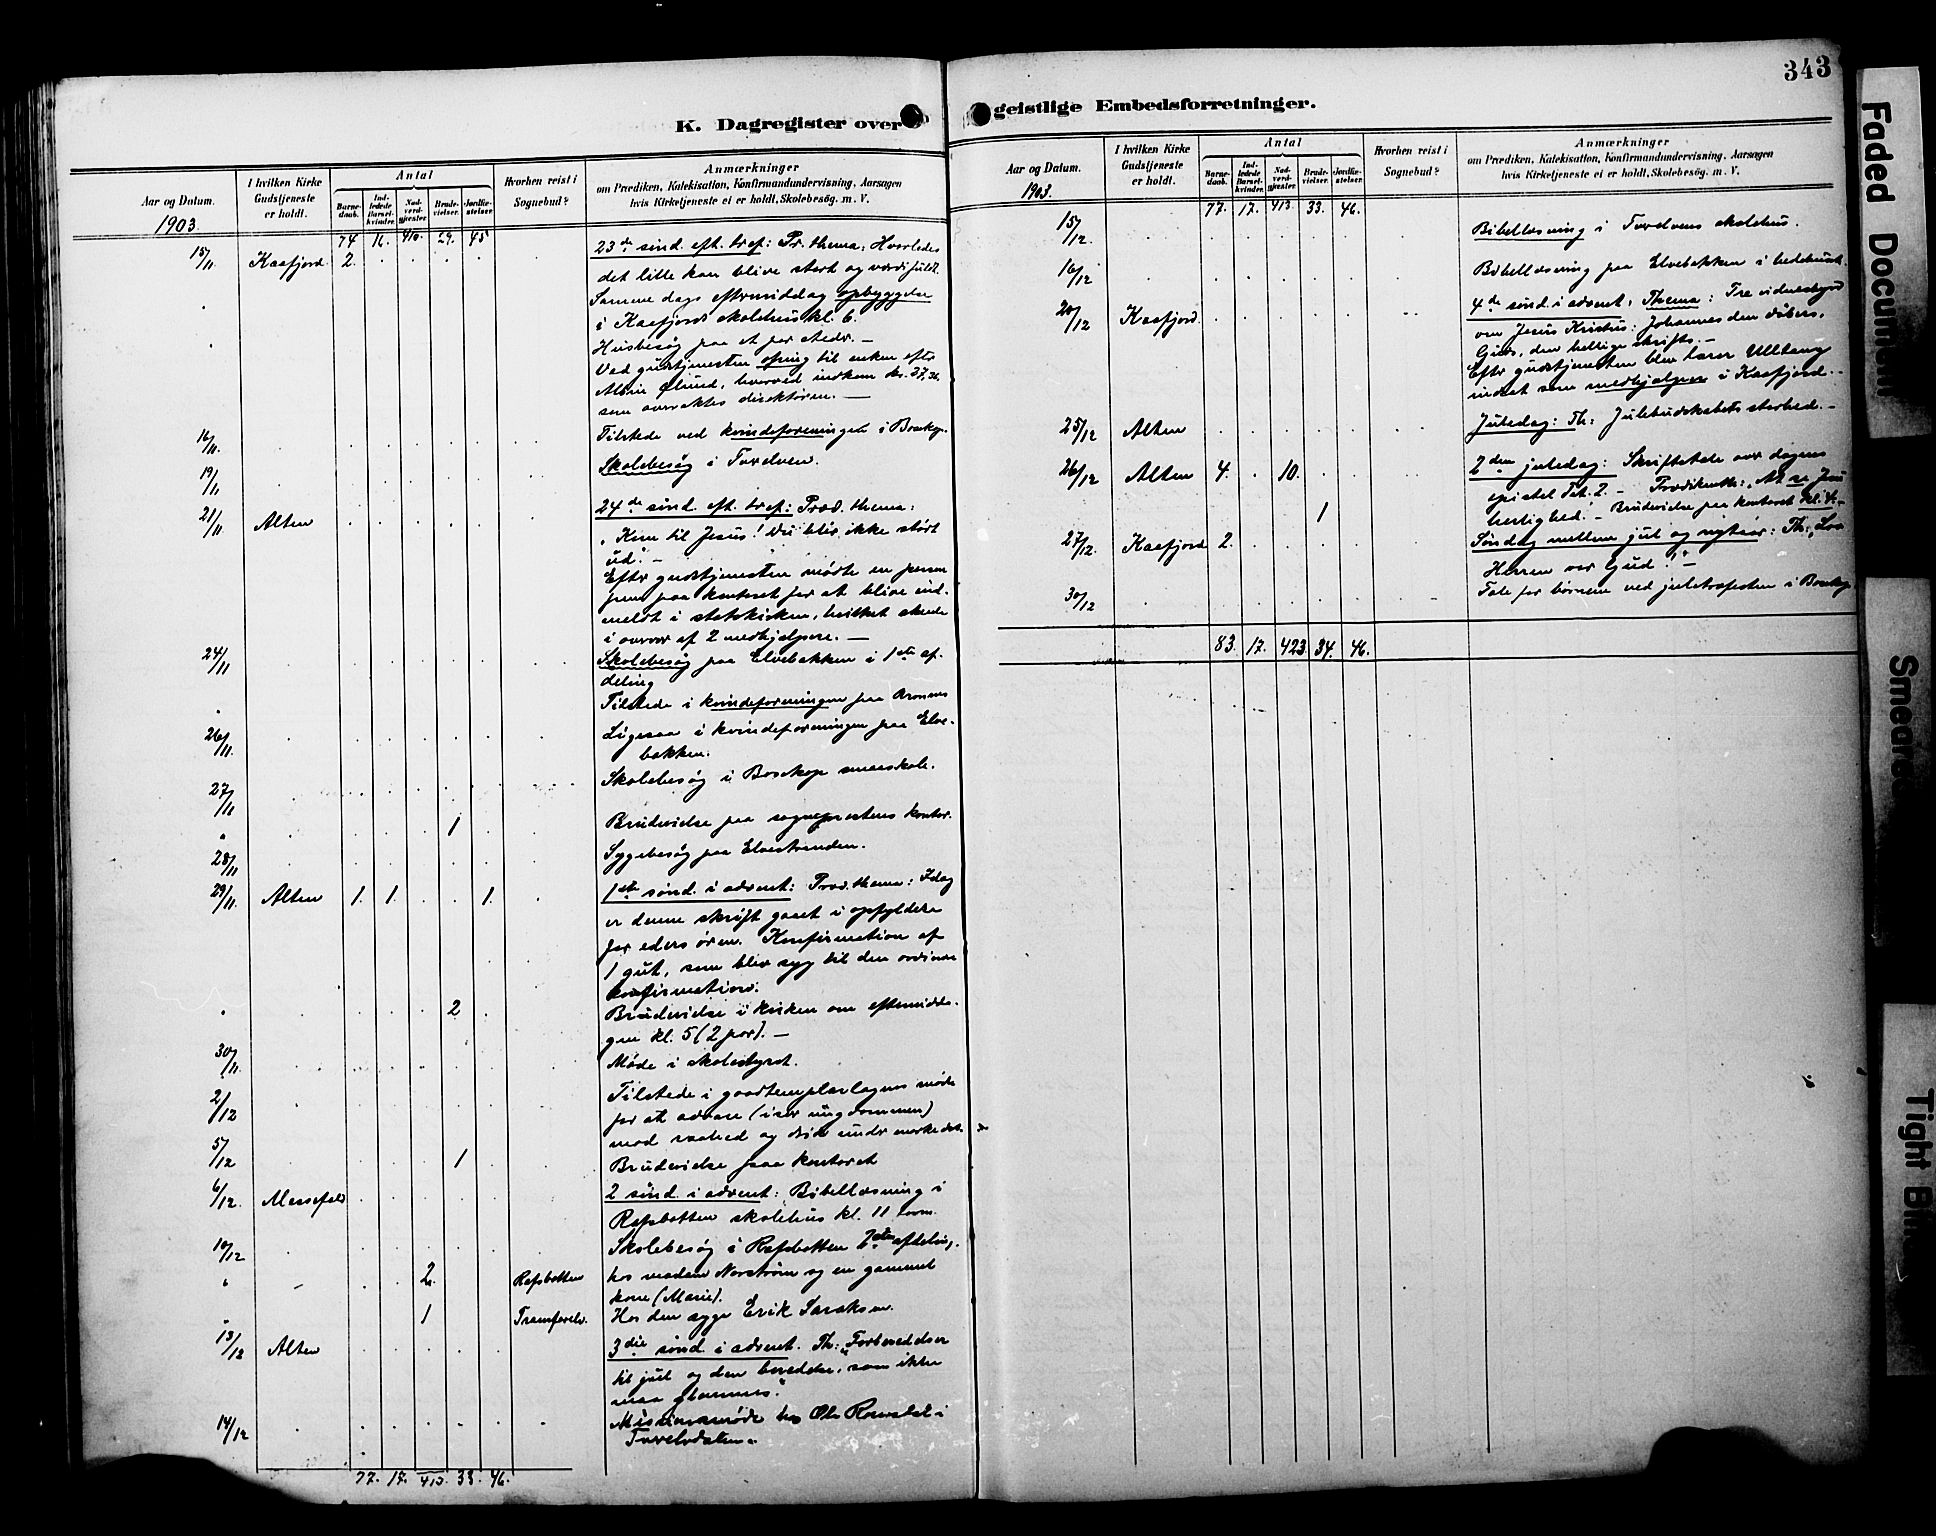 343
K. Dagregister over
Aar og Datum.
I hvilken Kirke Gudstjeneste er holdt.
Antal
Barnedaab.
Indledede Barselkvinder.
Nadverdgjester.
Brudevielser.
Jordfæstelser.
Hvorhen reist i Sognebud?
Anmærkninger
om Prædiken, Katekisation, Konfirmandundervisning, Aarsagen
hvis Kirketjeneste ei er holdt, Skolebesøg. m. V.
1903.
74 16. 410. 29. 45
15/11 Kaafjord 2. 23de sønd. eft. tref: Pr. thema: Hvorledes
det lille kan blive stort og værdifuldt.
Samme dags eftermiddag opbyggelse
i Kaafjords skolehus kl. 6.
Husbesøg paa et par steder. —
Ved gudstjenesten ofring til enken efter
som overraktes direktøren. —
16/11. Tilstede ved kvindeforeningen i Bosekop.
19/11 Skolebesøg i Tverelven.
21/11 Alten 24de sønd. eft. tref: Præd. thema:
"Kom til Jesus! Du blir ikke stødt
ud". —
Efter gudstjenesten mødte en person
frem paa kontoret for at blive ind-
meldt i statskirken, hvilket skede
i overvær af 2 medhjælpere. —
24/11 Skolebesøg paa Elvebakken i 1ste af-
deling
Tilstede i kvindeforeningen paa Kronnes
26/11. Ligesaa i kvindeforeningen paa Elve-
bakken.
Skolebesøg i Bosekop smaaskole.
27/11
1 Brudevielse paa sogneprestens kontor.
28/11 Sygebesøg paa Elvestranden.
29/11. Alten 1. 1. 1. 1ste sønd. i advent: Præd. thema: Idag
er denne skrift gaaet i opfyldelse
for eders ører. Konfirmation af
1 gut, som blev syg til den ordinære
konfirmation.
2 Brudevielse i kirken om eftermidda-
gen kl. 5 (2 par). —
30/11. Møde i skolestyret.
2/12 Tilstede i goodtemplarlagets møde
for at advare (især ungdommen)
mod raahed og drik under markedet.
5/12 1 Brudevielse paa kontoret
6/12. Messefald 2 sønd i advent: Bibellæsning i
Rafsbotten skolehus kl. 11 form.
10/12 Skolebesøg i Rafsbotten 2den afdeling.
2. Rafsbotten hos madam Norstrøm og en gammel
kone (Marie).
1 Tramfarelv. Hos den syge Erik
13/12 Alten 3die sønd i advent. Th: "Forberedelser
til jul og den beredelse, som ikke
maa glemmes."
14/12 Missionsmøde hos Ole Romsdal i
Tverelvdalen.
77. 17. 413. 33. 46.
geistlige Embedsforretninger.
Aar og Datum.
I hvilken Kirke Gudstjeneste er holdt.
Antal
Barnedaab.
Indledede Barselkvinder.
Nadverdgjester.
Brudevielser.
Jordfæstelser.
Hvorhen reist i Sognebud?
Anmærkninger
om Prædiken, Katekisation, Konfirmandundervisning, Aarsagen
hvis Kirketjeneste ei er holdt, Skolebesøg. m. V.
1903.
77. 17. 413. 33. 46.
15/12. Bibellæsning i Tverelvens skolehus.
16/12 Bibellæsning paa Elvebakken i bedehuset.
20/12 Kaafjord. 4de sønd i advent: Thema: Tre vidnesbyrd
om Jesus Kristus: Johannes den døbers,
Guds, den hellige skrifts. —
Efter gudstjenesten blev lærer Ulltang
indsat som medhjælper i Kaafjord. —
25/12 Alten Juledag: Th: Julebudskabets storhed. —
26/12 Alten 4. 10. 2den juledag: Skriftetale over dagens
epistel Tit. 2. — Prædikenth: At se Jesu
1 herlighed. — Brudevielse paa kontoret kl. 4. —
27/12. Kaafjord 2. Søndag mellem jul og nytaar: Th: "Lov
Herren vor Gud!" —
30/12 Tale for børnene ved juletræfesten i Bosekop.
83. 17. 423. 34. 46.
Faded Document
Smeared
Tight Bi